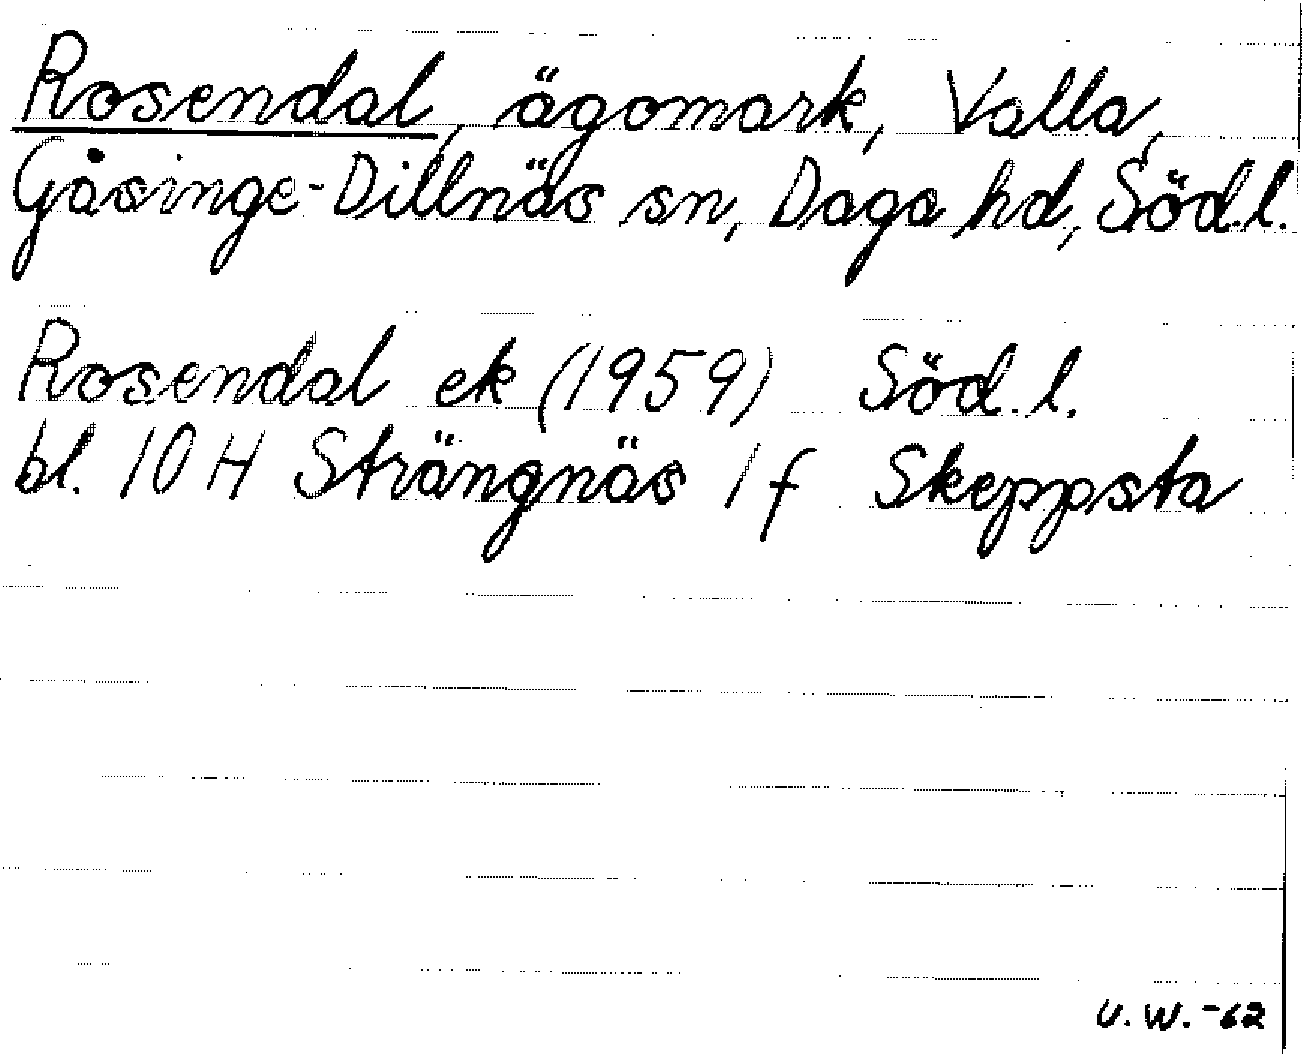 Rosendal, ägomark, Valla,
Gåsinge-Dillnäs sn, Daga hd, Söd.l.
Rosendal ek (1959) Söd.l.
bl. 10 H Strängnäs 1 f Skeppsta
U.W.-62